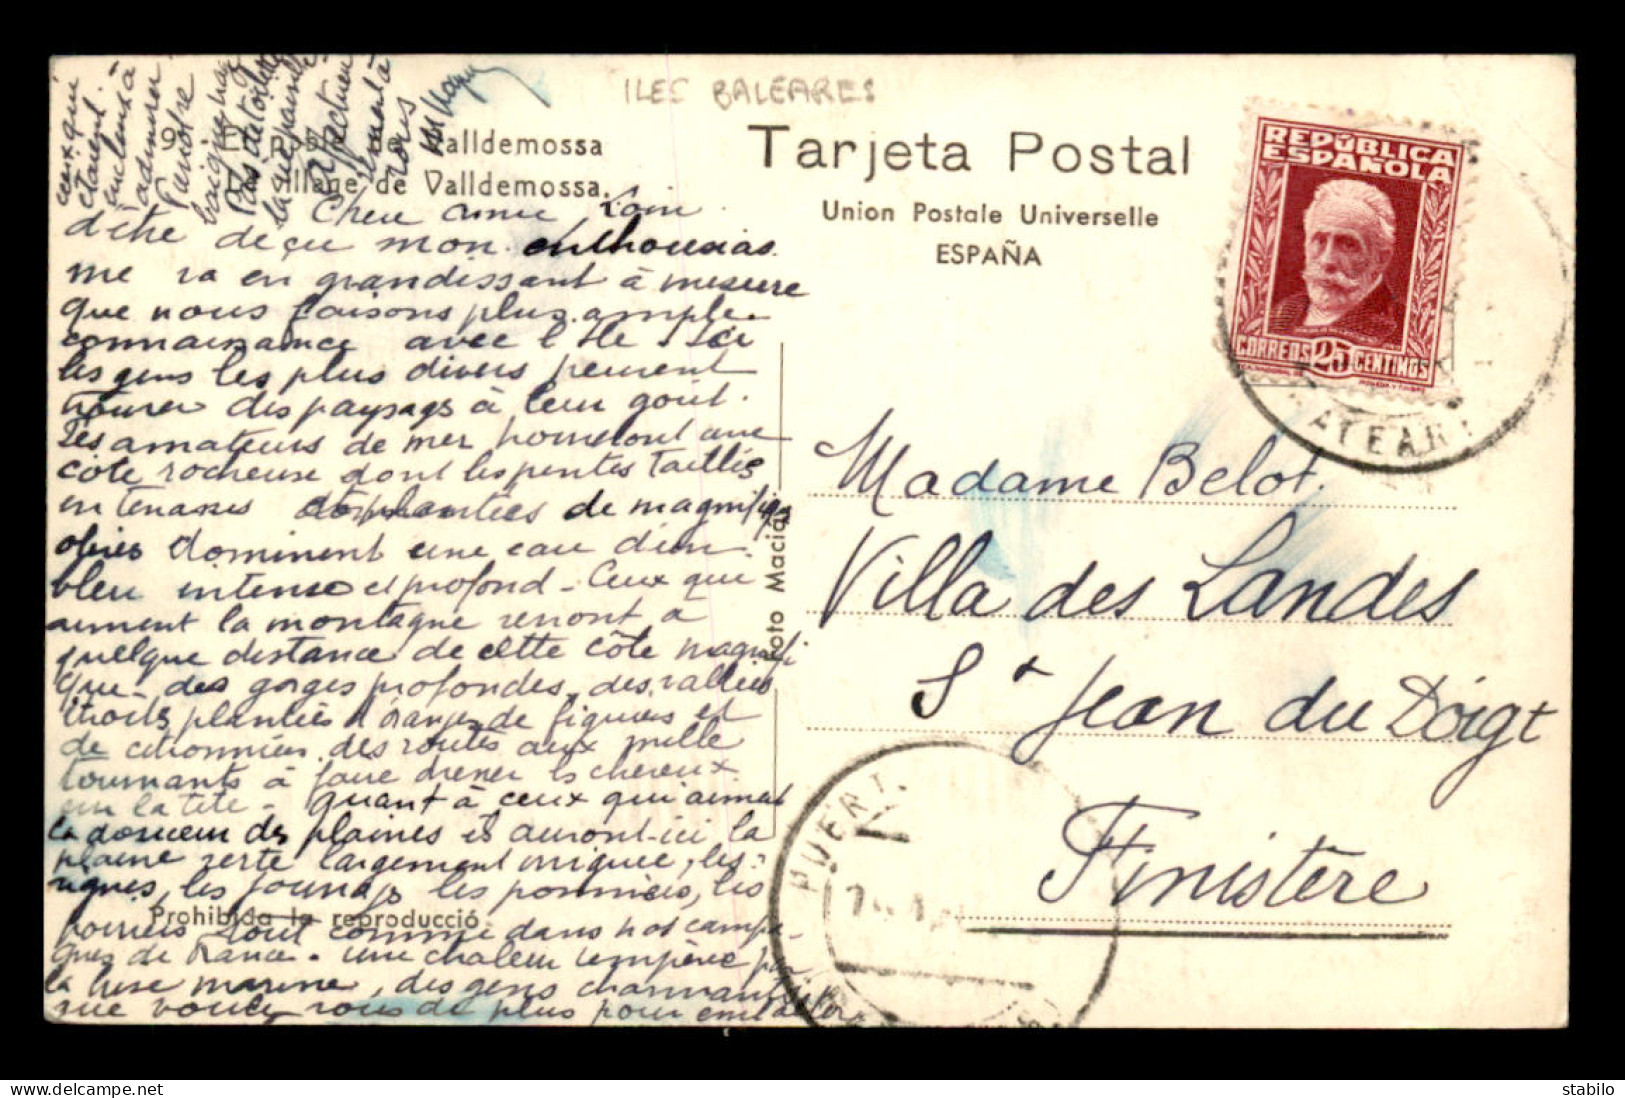 ILES BALEARES
9. - El poble de Valldemossa
Le village de Valldemossa.
Tarjeta Postal
Union Postale Universelle
ESPAÑA
REPÚBLICA
ESPAÑOLA
CORREOS 25 CENTIMOS
Chère amie, Loin
d'être deçu mon enthousias
me va en grandissant à mesure
que nous faisons plus ample
connaissance avec l'Ile. Ici
les gens les plus divers peuvent
trouver des paysages à leur goût.
Les amateurs de mer pomeront une
côte rocheuse dont les pentes taillées
en terrasses plantées de magnifiques
oliviers dominent une eau d'un
bleu intense et profond - Ceux qui
aiment la montagne iront à
quelque distance de cette côte magnifi
que - des gorges profondes, des vallées
étroites plantées d'orangers, de figuiers et
de citronniers, des routes aux mille
tournants à faire dresser les cheveux
sur la tête - quant à ceux qui aiment
la douceur des plaines ils auront ici la
plaine verte largement irriguée, les
vignes, les les pommiers, les
poiriers tout comme dans nos campa-
gnes de France - une chaleur tempérée par
la brise marine, des gens charmants
que voulez vous de plus pour
ceux qui
étaient
à
admirer
Pas de
Foto Maciá
Prohibida la reproducció
Madame Belot.
Villa des Landes
St Jean du Doigt
Finistère
PUERT